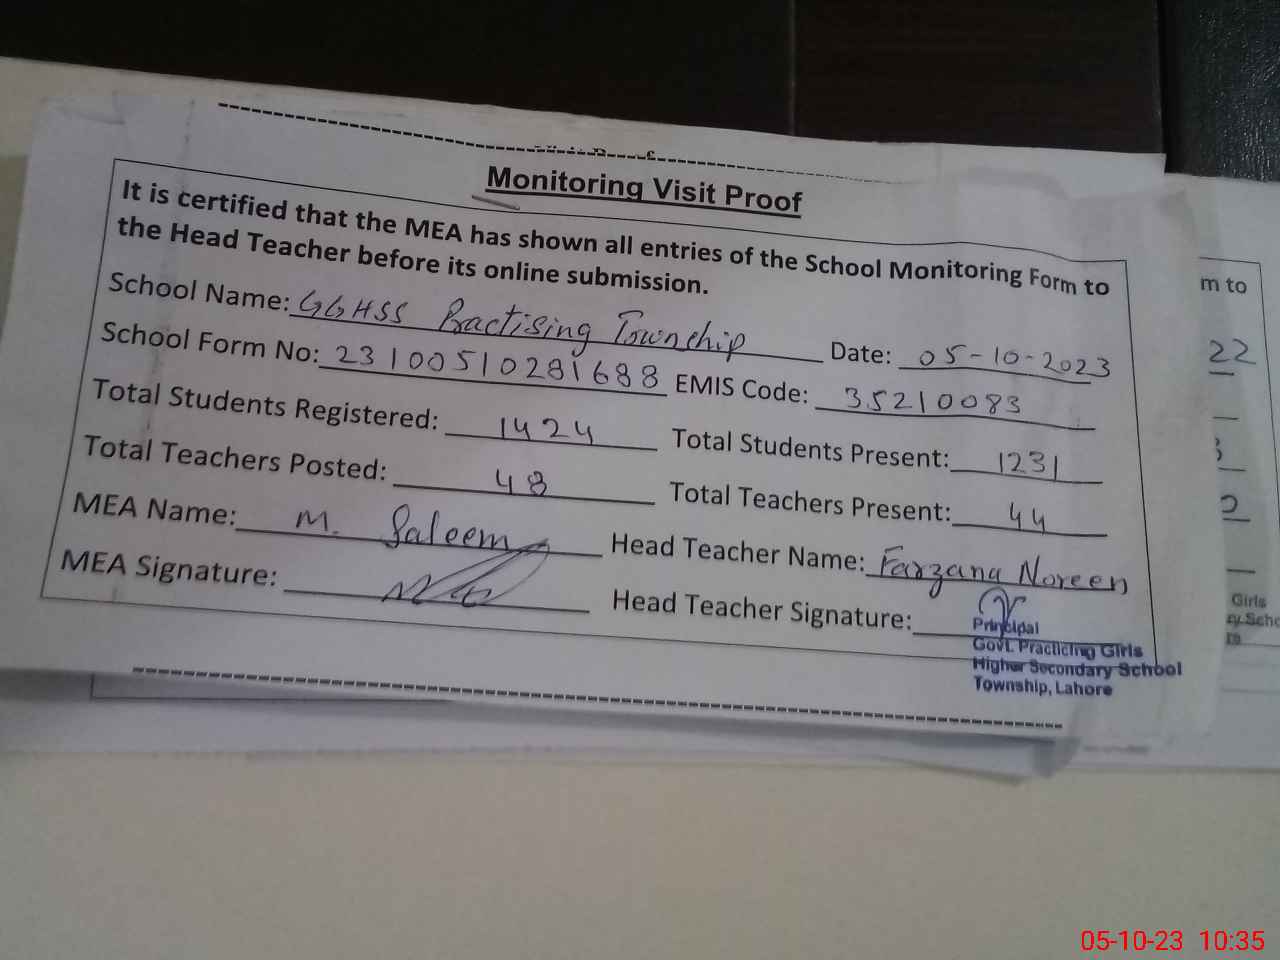 Monitoring Visit Proof
It is certified that the MEA has shown all entries of the School Monitoring Form to
the Head Teacher before its online submission.
School Name: GGHSS Practising Township Date: 05-10-2023
School Form No: 23100510281688 EMIS Code: 35210083
Total Students Registered: 1424 Total Students Present: 1231
Total Teachers Posted: 48 Total Teachers Present: 44
MEA Name: M. Saleem Head Teacher Name: Farzana Noreen
MEA Signature: Head Teacher Signature:
Principal
Govt. Practicing Girls
Higher Secondary School
Township, Lahore
m to
22
Girls
05-10-23 10:35